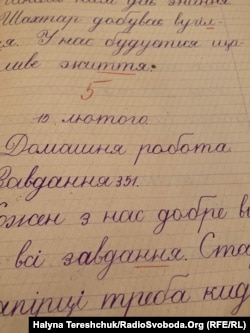 дає знання
Шахтар добуває вугіл-
ля. У нас будується щас-
ливе життя.
5
10 лютого.
Домашня робота
Завдання 351.
Кожен з нас добре
всі завдання.
папірці треба
Halyna Tereshchuk/RadioSvoboda.Org (RFE/RL)